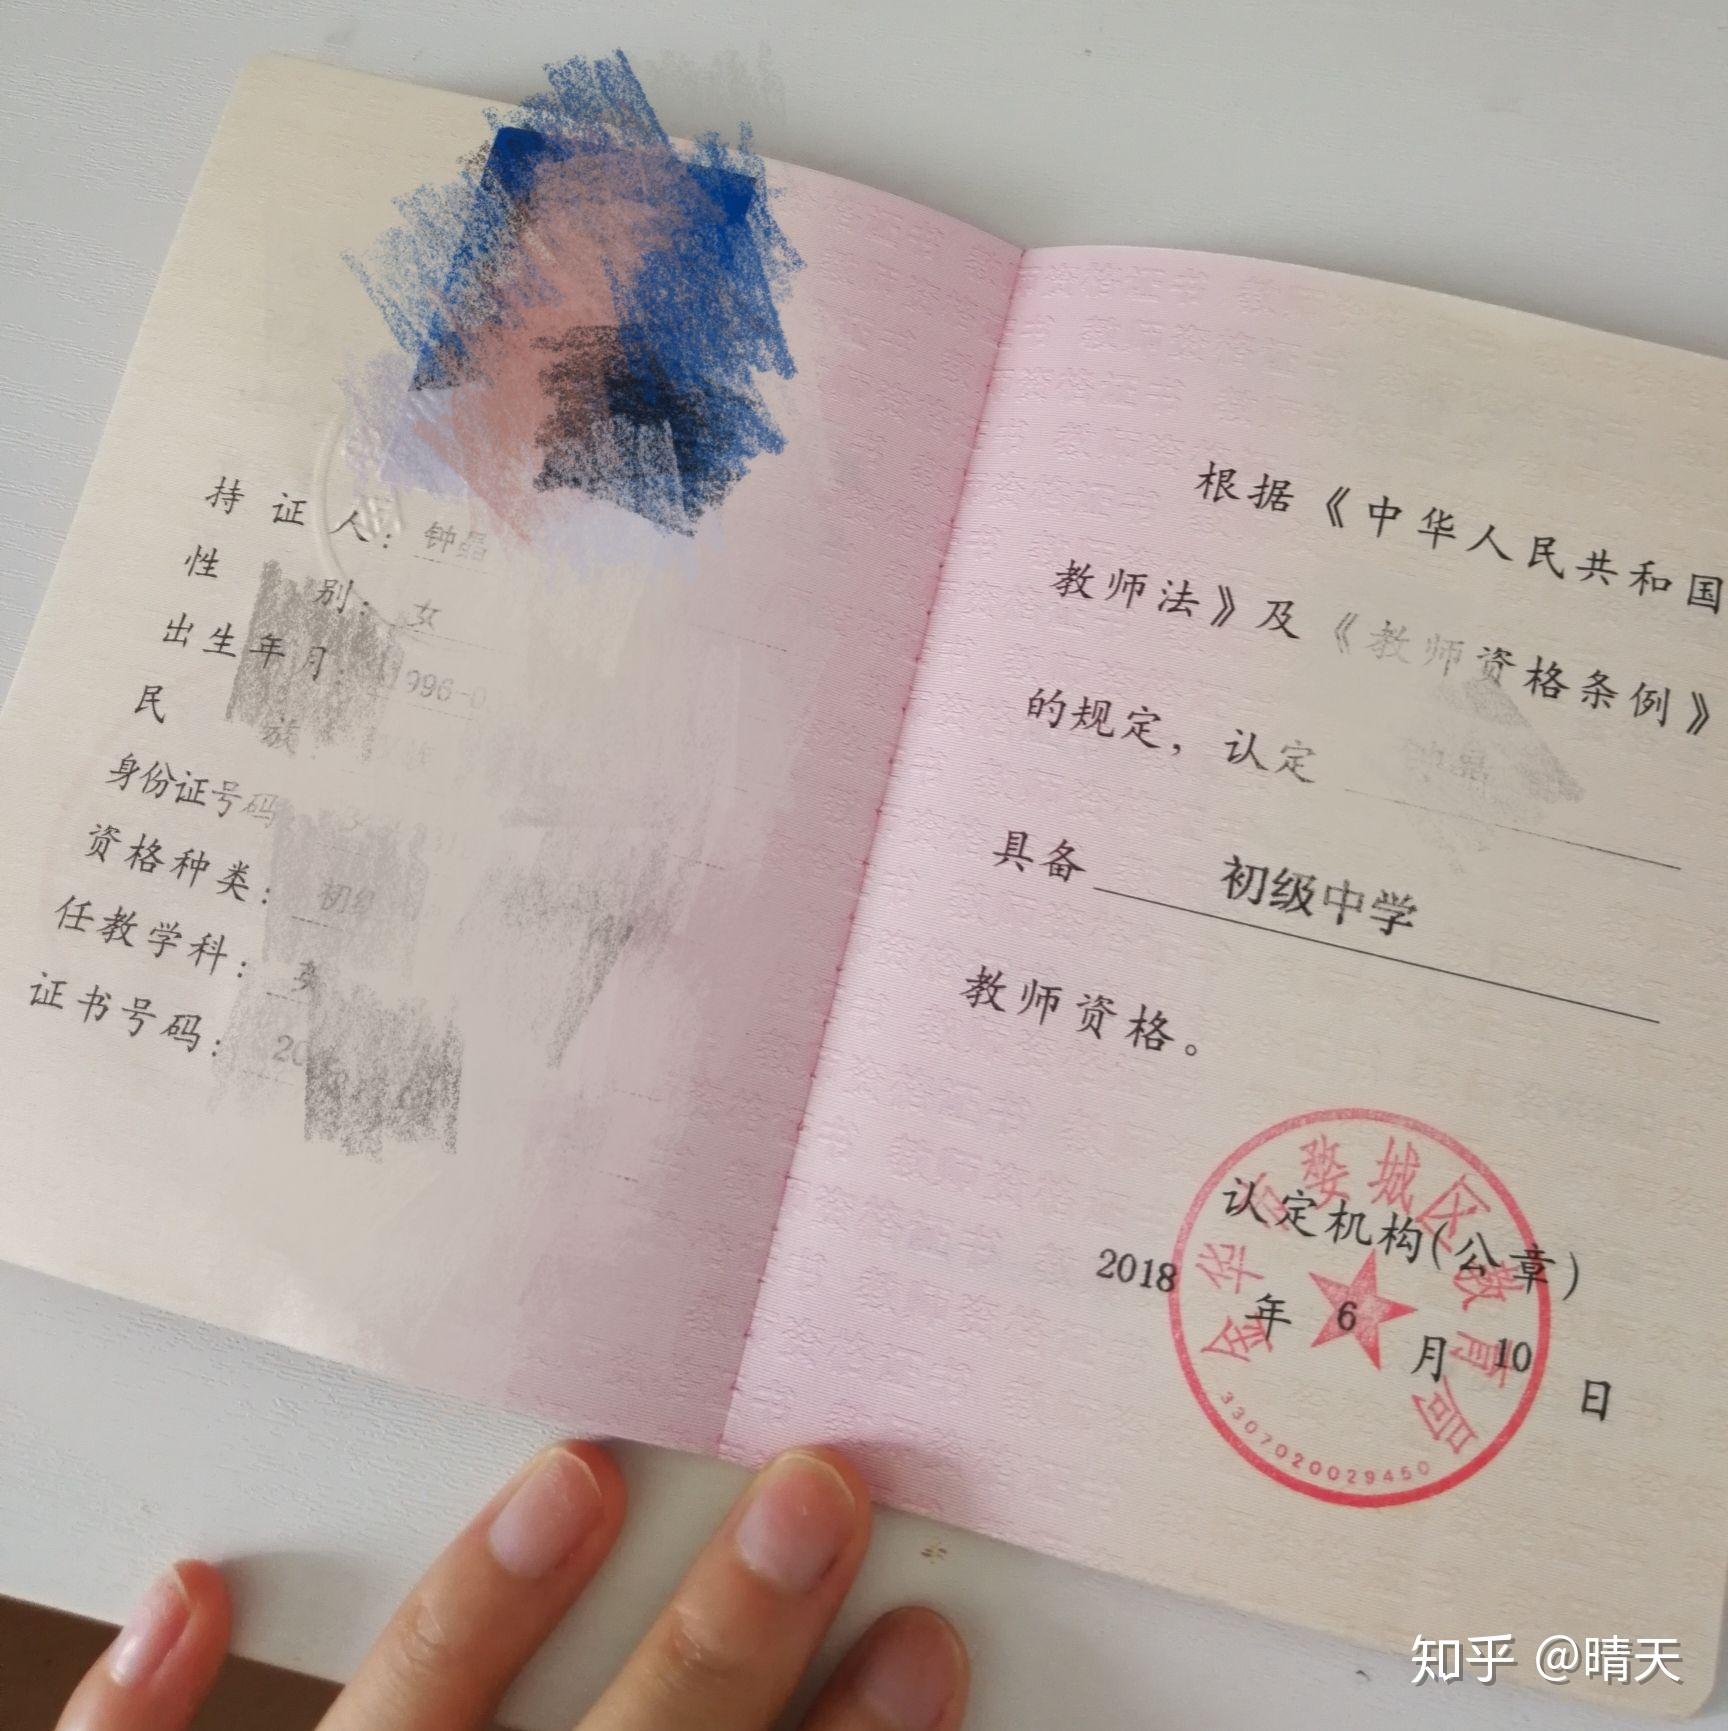 持证人：钟晶
性别：女
出生年月：1996-0
民族：
身份证号码
资格种类：初级
任教学科：英
证书号码：20
根据《中华人民共和国
教师法》及《教师资格条例》
的规定，认定
具备 初级中学
教师资格。
认定机构(公章)
2018年6月10日
金华市婺城区教育局
3307020029450
知乎 @晴天